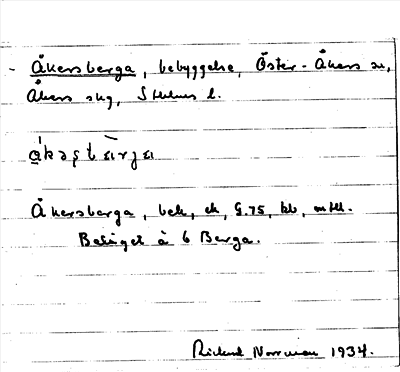 - Åkersberga, bebyggelse, Öster-Åkers sn,
Åkers skg, Sthlms l.
Åkersberga, bek, ek, G.75, kb, mtl.
Beläget å 6 Berga.
Rickard Norrman 1934.